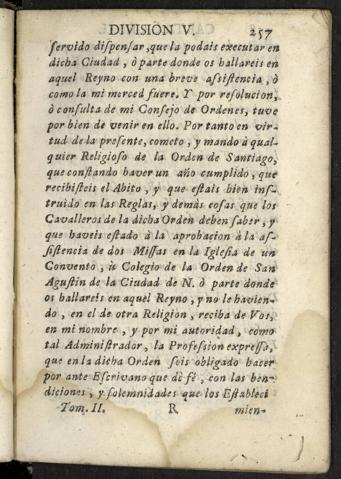 DIVISIÓN V. 257
servido dispensar, que la podais executar en
dicha Ciudad, ò parte donde os hallareis en
aquel Reyno con una breve assistencia, ò
como la mi merced fuere. Y por resolucion,
ò consulta de mi Consejo de Ordenes, tuve
por bien de venir en ello. Por tanto en vir-
tud de la presente, cometo, y mando à qual-
quier Religioso de la Orden de Santiago,
que constando haver un año cumplido, que
recibisteis el Abito, y que estais bien ins-
truido en las Reglas, y demàs cosas que los
Cavalleros de la dicha Orden deben saber, y
que haveis estado à la aprobacion à la as-
sistencia de dos Missas en la Iglesia de un
Convento, ù Colegio de la Orden de San
Agustin de la Ciudad de N. ò parte donde
os hallareis en aquel Reyno, y no le havien-
do, en el de otra Religion, reciba de Vos,
en mi nombre, y por mi autoridad, como
tal Administrador, la Profession expressa,
que en la dicha Orden sois obligado hacer
por ante Escrivano que dè fé, con las ben-
diciones, y solemnidades que los Estableci
Tom. II. R mien-